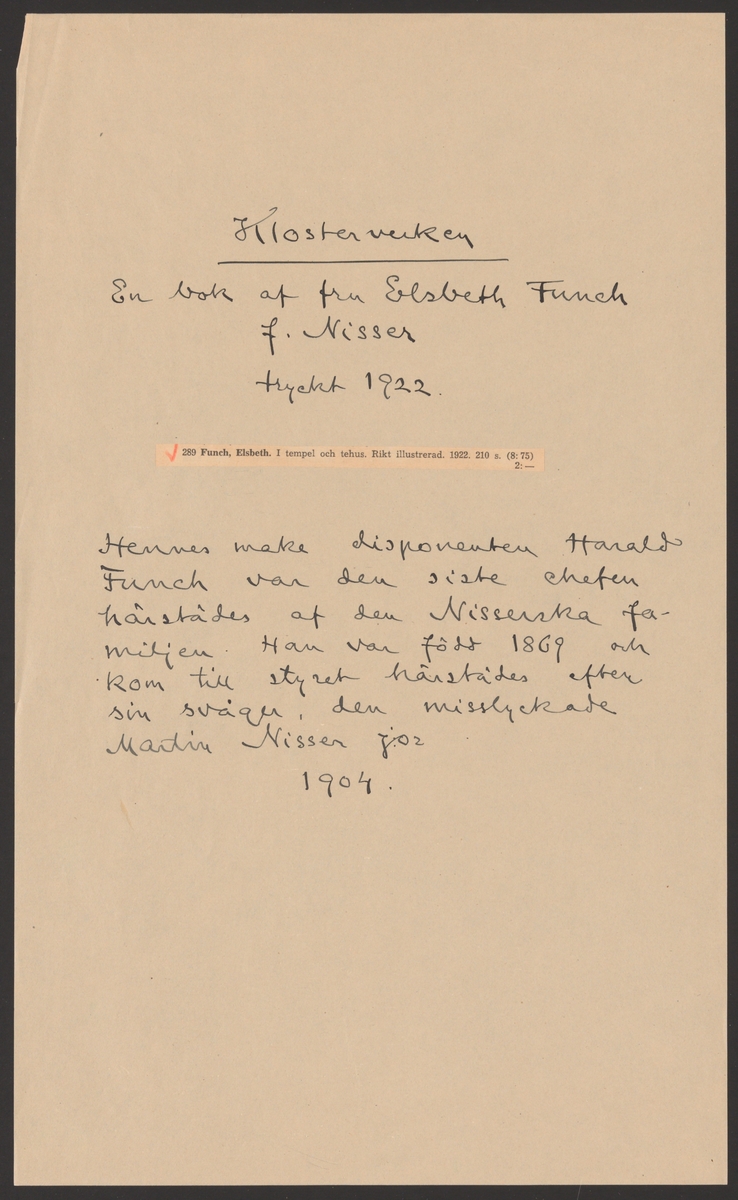 Klosterverken
En bok af fru Elsbeth Funch
f. Nisser
tryckt 1922.
289 Funch, Elsbeth. I tempel och tehus. Rikt illustrerad. 1922. 210 s. (8:75)
2:—
Hennes make disponenten Harald
Funch var den siste chefen
härstädes af den Nisserska fa-
miljen. Han var född 1869 och
kom till styret härstädes efter
sin svåger, den misslyckade
Martin Nisser j:or
1904.